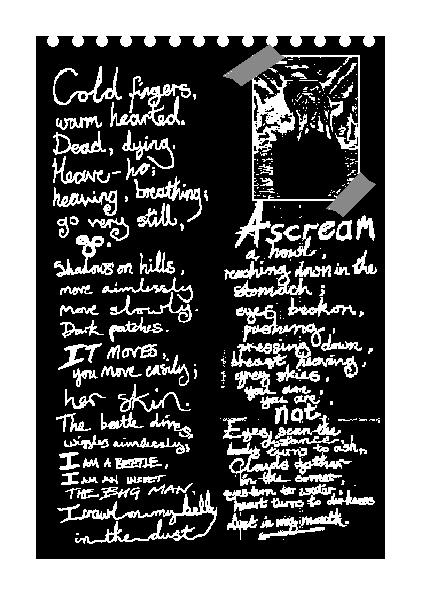 Cold fingers,
warm hearted.
Dead, dying.
Heave-ho;
heaving, breathing;
go very still,
go.
Shadows on hills,
move aimlessly
move slowly.
Dark patches.
IT MOVES,
you move easily;
her skin.
The beetle dims,
wiggles aimlessly;
I AM A BEETLE,
I AM AN INSECT
THE BUG MAN.
I crawl on my belly
in the dust
A scream
a howl,
reaching down in the
stomach;
eyes beckon,
pushing,
pressing down,
breast heaving,
grey skies,
you are,
you are,
not,
Eyes scan the
distance,
body turns to ash,
Clouds gather
in the corner,
eyes turn to water,
heart turns to darkness
dust in my mouth.